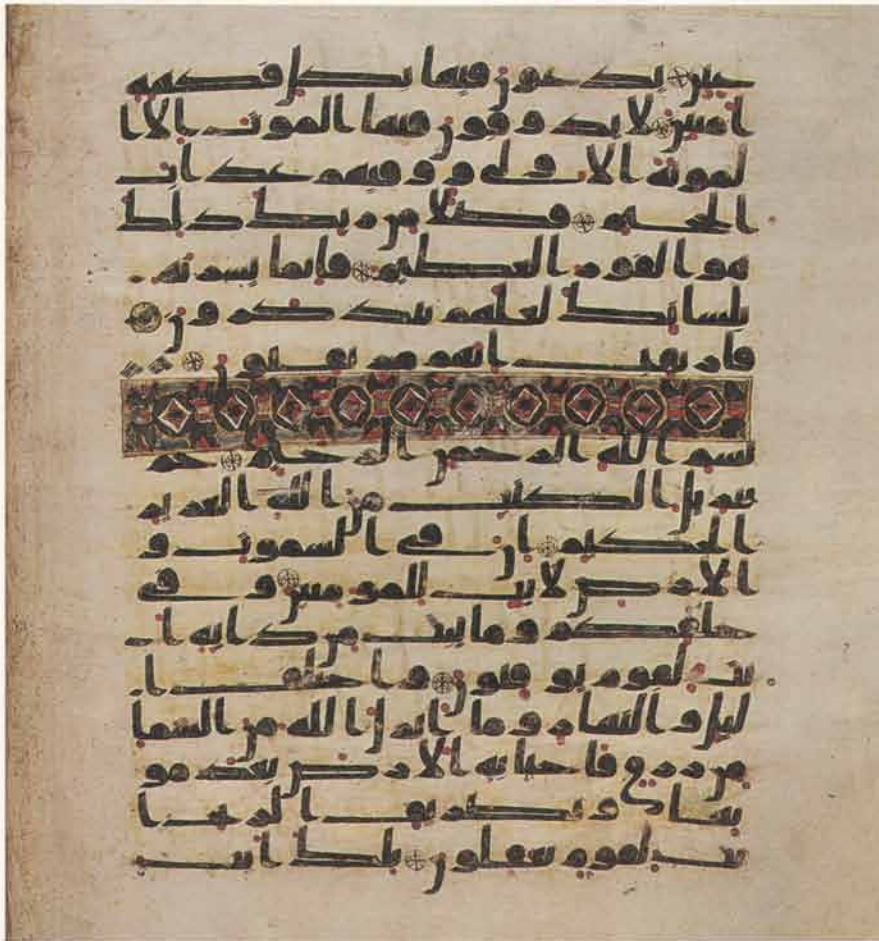 عين يدعون فيها بكل فكهه
امنين لا يذوقون فيها الموت الا ا
لموته الاولى ووقيهم عذاب
الجحيم فضلا من ربك ذلك
هو الفوز العظيم فانما يسرنه
بلسانك لعلهم يتذكرون
فارتقب انهم مرتقبون
بسم الله الرحمن الرحيم حم
تنزيل الكتب من الله العزيز
الحكيم ان في السموت و
الارض لايت للمومنين وفي
خلقكم وما يبث من دابه ا
يت لقوم يوقنون واختلف ا
ليل والنهار وما انزل الله من السما
من رزق فاحيا به الارض بعد مو
تها وتصريف الريح ا
يت لقوم يعقلون تلك ايت